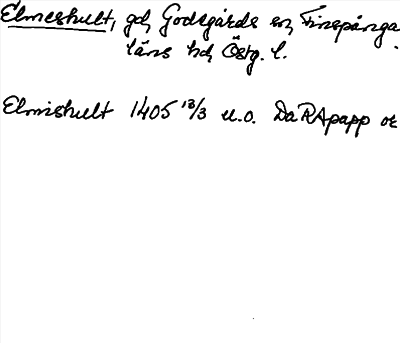 Elmeshult, gd, Godegårds sn, Finspånga
läns hd, Östg. l.
Elmishult 1405 13/3 u.o. Da RApapp or